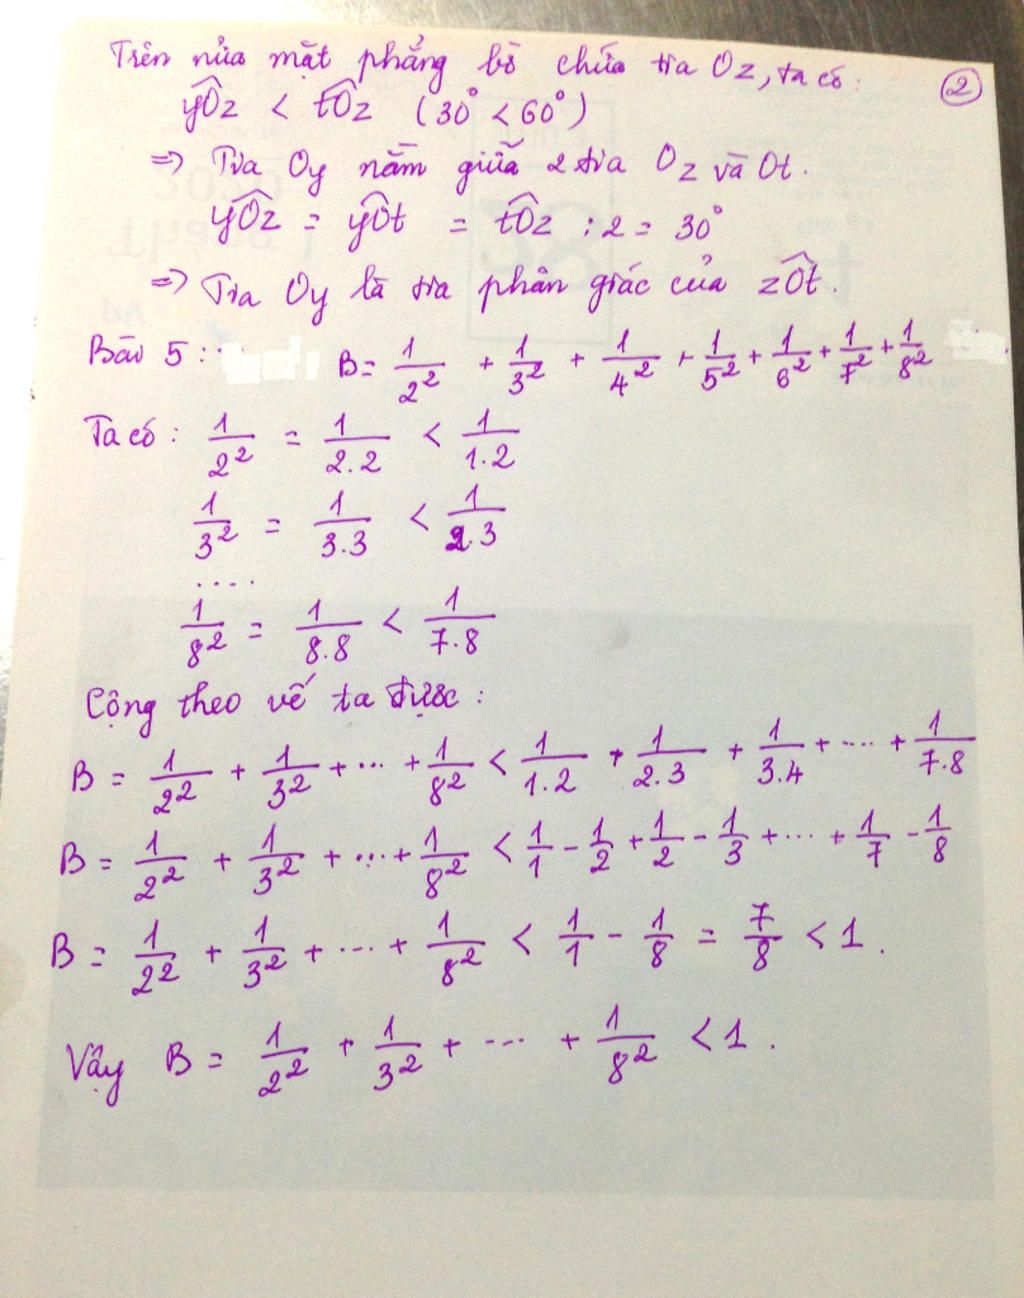 Trên nửa mặt phẳng bờ chứa tia Oz, ta có: ②
yÔz < tÔz (30° < 60°)
=> Tia Oy nằm giữa 2 tia Oz và Ot.
yÔz = yÔt = tÔz : 2 = 30°
=> Tia Oy là tia phân giác của zÔt.
Bài 5 : B = 1/2² + 1/3² + 1/4² + 1/5² + 1/6² + 1/7² + 1/8²
Ta có : 1/2² = 1/2.2 < 1/1.2
1/3² = 1/3.3 < 1/2.3
....
1/8² = 1/8.8 < 1/7.8
Cộng theo vế ta được :
B = 1/2² + 1/3² + ... + 1/8² < 1/1.2 + 1/2.3 + 1/3.4 + ... + 1/7.8
B = 1/2² + 1/3² + ... + 1/8² < 1/1 - 1/2 + 1/2 - 1/3 + ... + 1/7 - 1/8
B = 1/2² + 1/3² + ... + 1/8² < 1/1 - 1/8 = 7/8 < 1.
Vậy B = 1/2² + 1/3² + ... + 1/8² < 1.